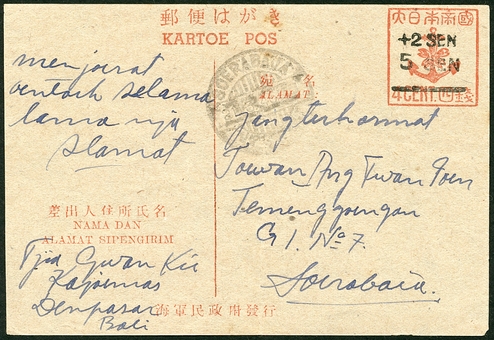 郵便はがき
KARTOE POS
大日本南國
+2 SEN
5 SEN
4 CENT. 四錢
menjerat
oentoek selama
lama nja
slamat
宛名
ALAMAT
jang terhormat
Toewan Ang Twan Soen
Temenggoengan
G I. No 7.
Soerabaia.
差出人住所氏名
NAMA DAN
ALAMAT SIPENGIRIM
Tjia Gwan Kie
Denpasar
Bali
海軍民政府發行